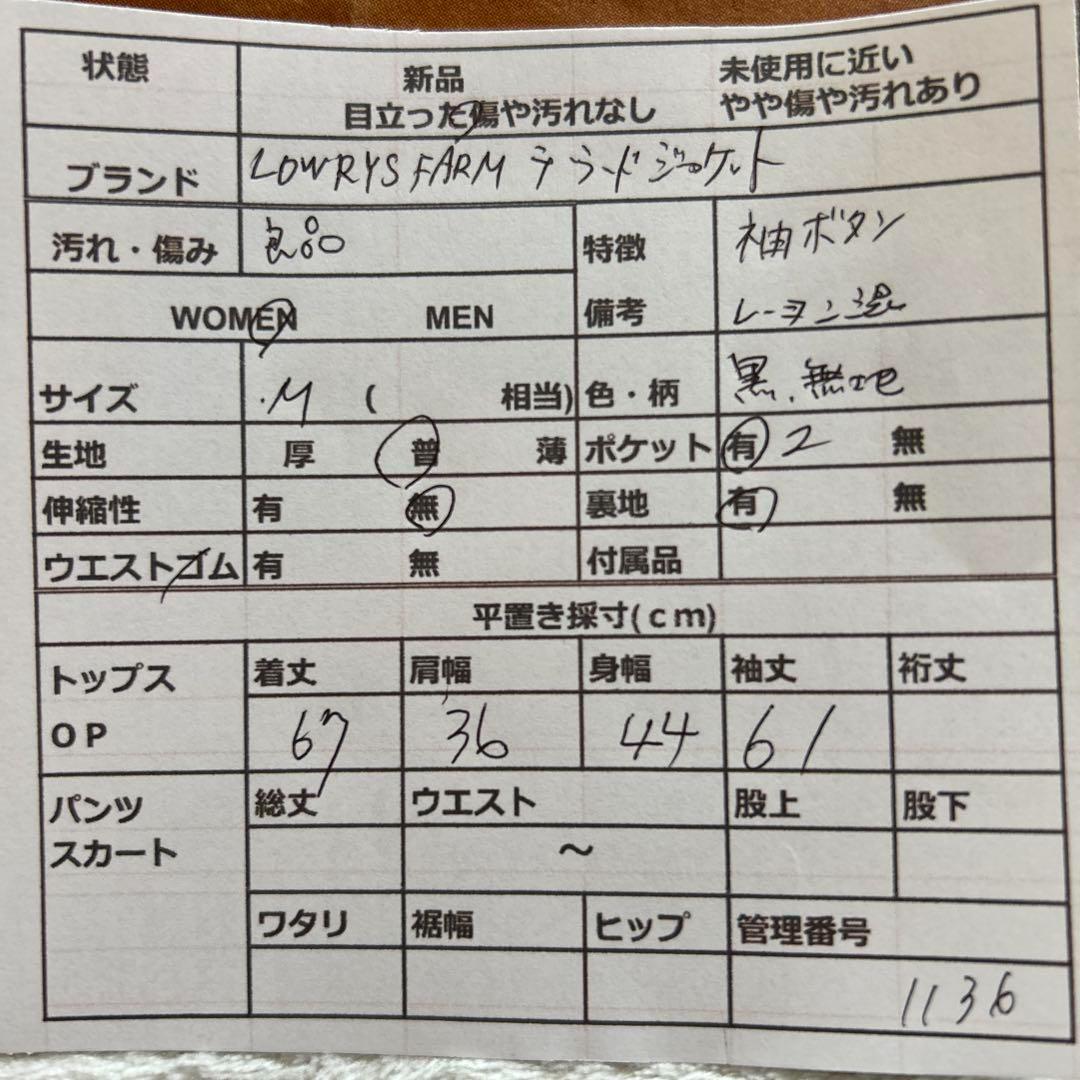 状態 新品 未使用に近い
目立った傷や汚れなし やや傷や汚れあり
ブランド LOWRYS FARM テーラードジャケット
汚れ・傷み 良品 特徴 袖ボタン
WOMEN MEN 備考 レーヨン混
サイズ M ( 相当) 色・柄 黒、無地
生地 厚 普 薄 ポケット 有 2 無
伸縮性 有 無 裏地 有 無
ウエストゴム 有 無 付属品
平置き採寸(cm)
トップス 着丈 肩幅 身幅 袖丈 裄丈
OP 67 36 44 61
パンツ 総丈 ウエスト 股上 股下
スカート ～
ワタリ 裾幅 ヒップ 管理番号
1136